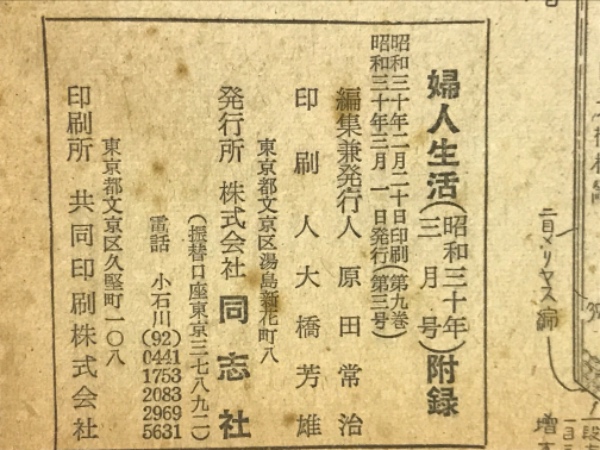 婦人生活(昭和三十年三月号)附録
昭和三十年二月二十日印刷(第九巻
昭和三十年三月 一 日発行(第三号)
編集兼発行人 原田常治
印刷人 大橋芳雄
東京都文京区湯島新花町八
発行所 株式会社 同志社
(振替口座東京三七八九二)
電話 小石川(92)0441 1753 2083 2969 5631
東京都文京区久堅町一〇八
印刷所 共同印刷株式会社
二目マリヤス編
増